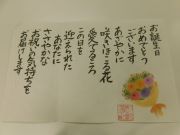 お誕生日
おめでとう
ございます
あざやかに
咲いほこる花
愛でるこころ
この日を
迎えられた
あなたに
ささやかな
お祝いの気持ちを
お届けします